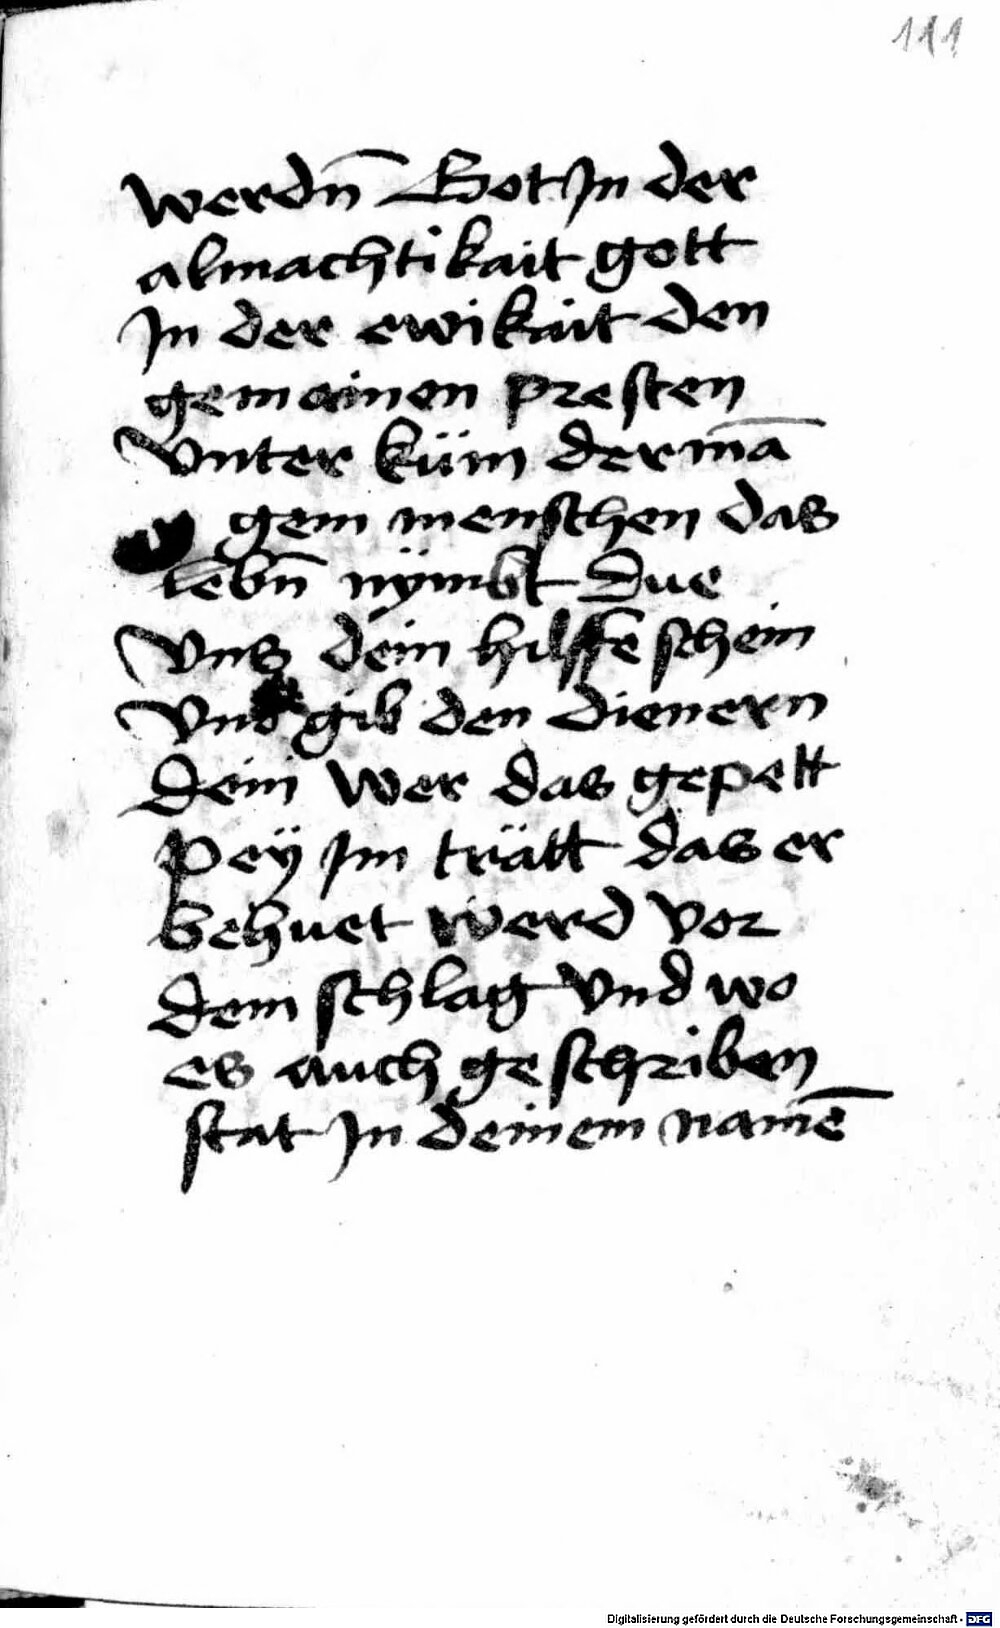 111
werdn̄ Got In der
almachtikait gott
In der ewikait den
gemainen presten
Vnter küm der mā
gem menschen das
lebn̄ nÿmbt Due
Vns dein hilffe schein
Vnd gib den dienern
Dein wer das gepett
Pey Im trätt das er
behuet werd vor
dem schlag vnd wo
es auch geschriben
stat In deinem namē
Digitalisierung gefördert durch die Deutsche Forschungsgemeinschaft - DFG